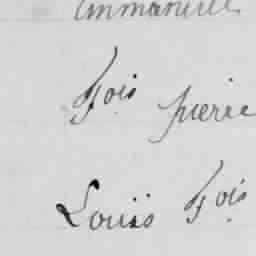 Emmanuel
fois pierre
Louis fois